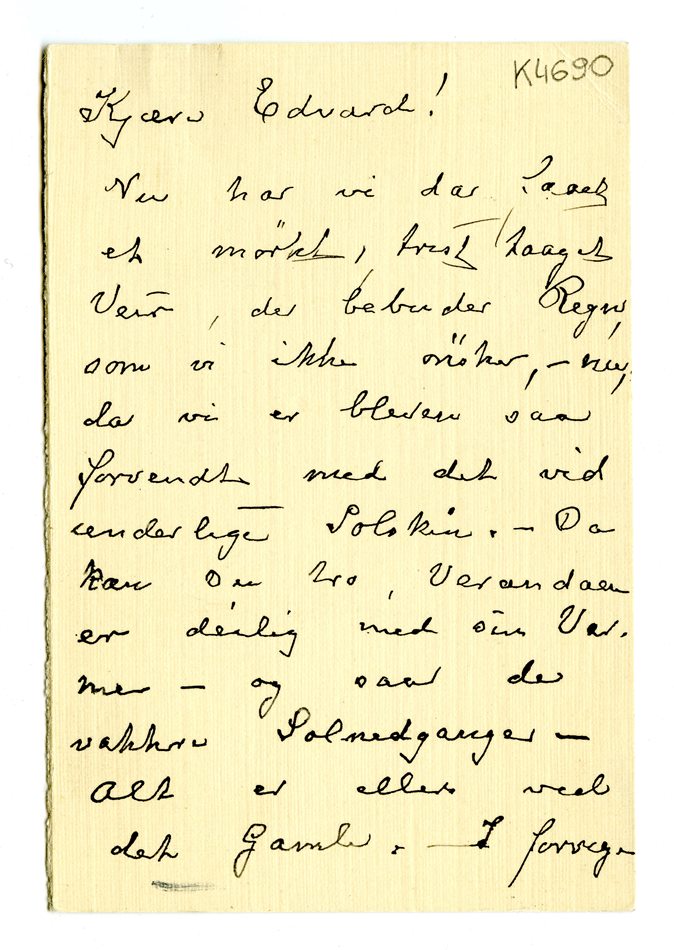 K4690
Kjære Edvard!
Nu har vi da faaet
et mörkt, trist taaget
Veir, der bebuder Regn,
som vi ikke önsker, – nu,
da vi er bleven saa
forvendt med det vid
underlige Solskin. – Du
kan Du tro, Verandaen
er deilig med sin Var-
me – og saa de
vakkre Solnedganger –
Alt er ellers ved
det Gamle. – I forrige